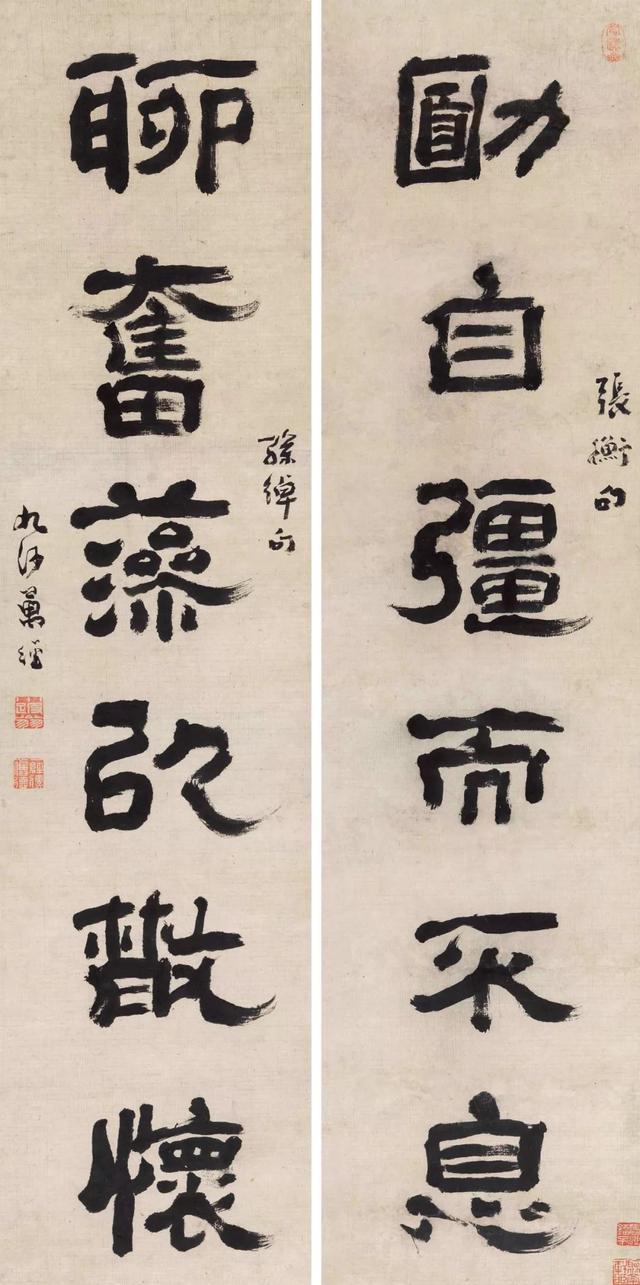 勔自彊而不息
張衡句
聊奮藻以散懷
孫綽句
九沙萬經